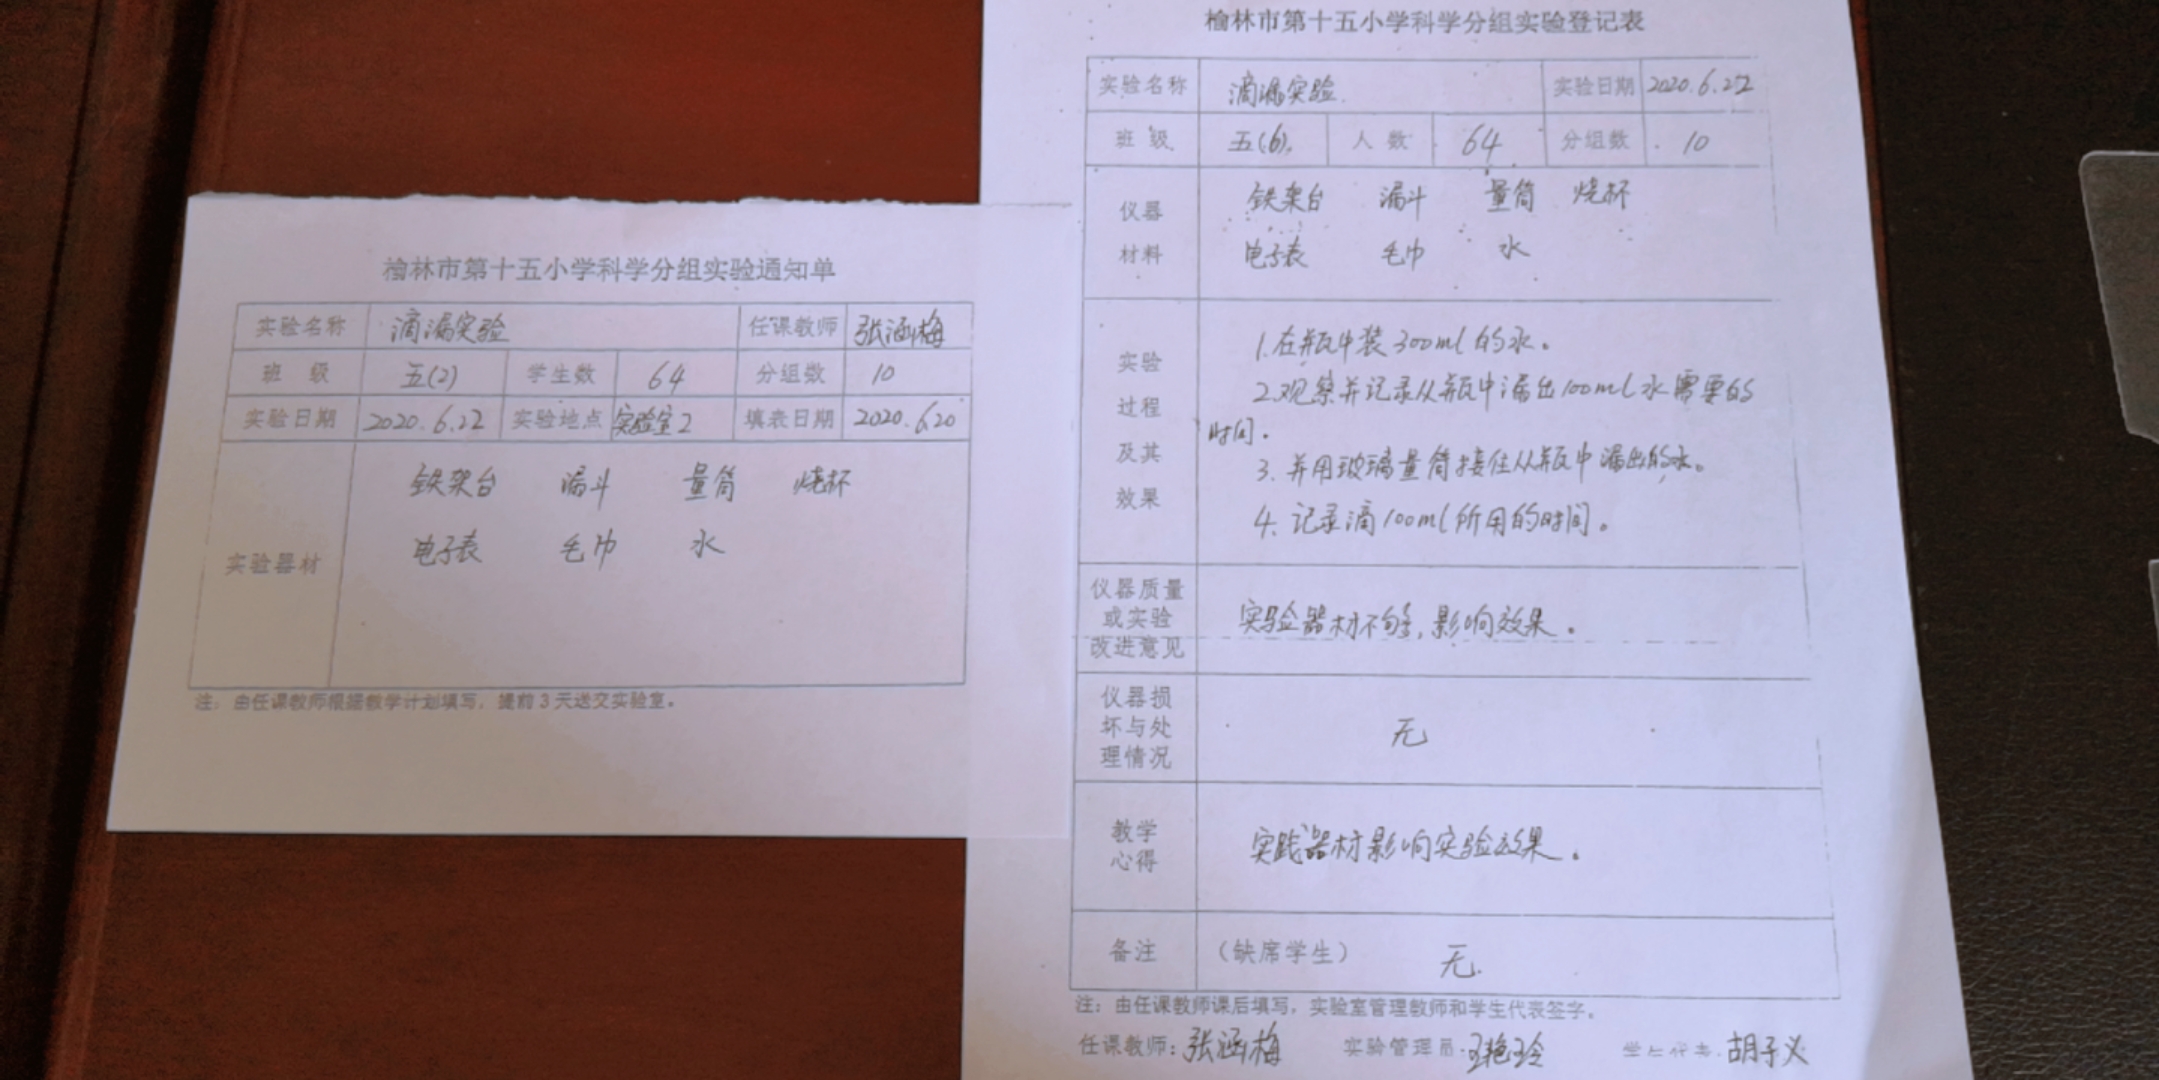 榆林市第十五小学科学分组实验通知单
实验名称 滴漏实验 任课教师 张涵梅
班 级 五(2) 学生数 64 分组数 10
实验日期 2020.6.22 实验地点 实验室2 填表日期 2020.6.20
实验器材
铁架台 漏斗 量筒 烧杯
电子表 毛巾 水
注：由任课教师根据教学计划填写，提前3天送交实验室。
榆林市第十五小学科学分组实验登记表
实验名称 滴漏实验. 实验日期 2020.6.22
班 级 五(6). 人 数 64 分组数 10
仪器
材料
铁架台 漏斗 量筒 烧杯
电子表 毛巾 水
实验
过程
及其
效果
1.在瓶中装300ml的水。
2.观察并记录从瓶中漏出100ml水需要的
时间。
3.并用玻璃量筒接住从瓶中漏出的水。
4.记录滴100ml所用的时间。
仪器质量
或实验
改进意见
实验器材不够,影响效果。
仪器损
坏与处
理情况
无
教学
心得
实践器材影响实验效果。
备注 （缺席学生） 无.
注：由任课教师课后填写，实验室管理教师和学生代表签字。
任课教师：张涵梅 实验管理员：王艳玲 学生代表：胡子义